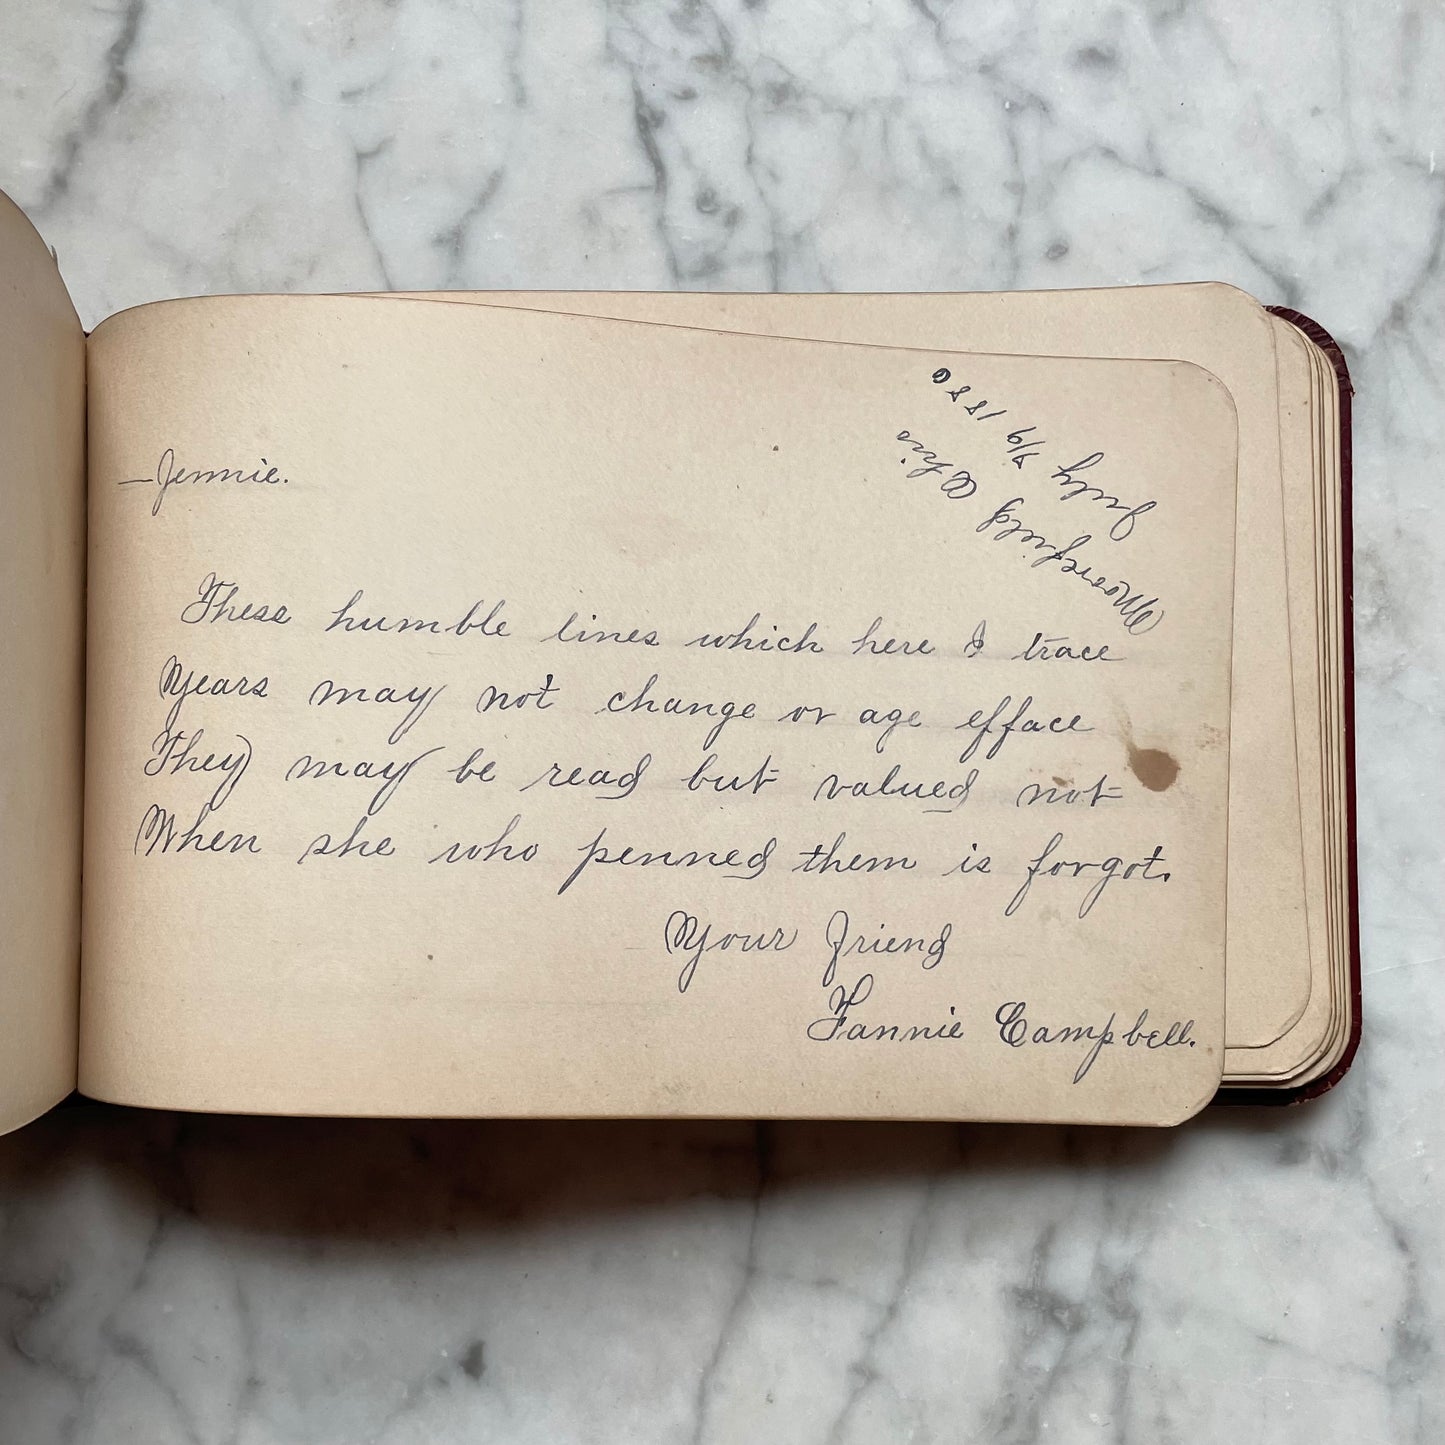 —Jennie.
Moorefield Ohio
July 1880
These humble lines which here I trace
Years may not change or age efface
They may be read but valued not
When she who penned them is forgot.
Your friend
Fannie Campbell.